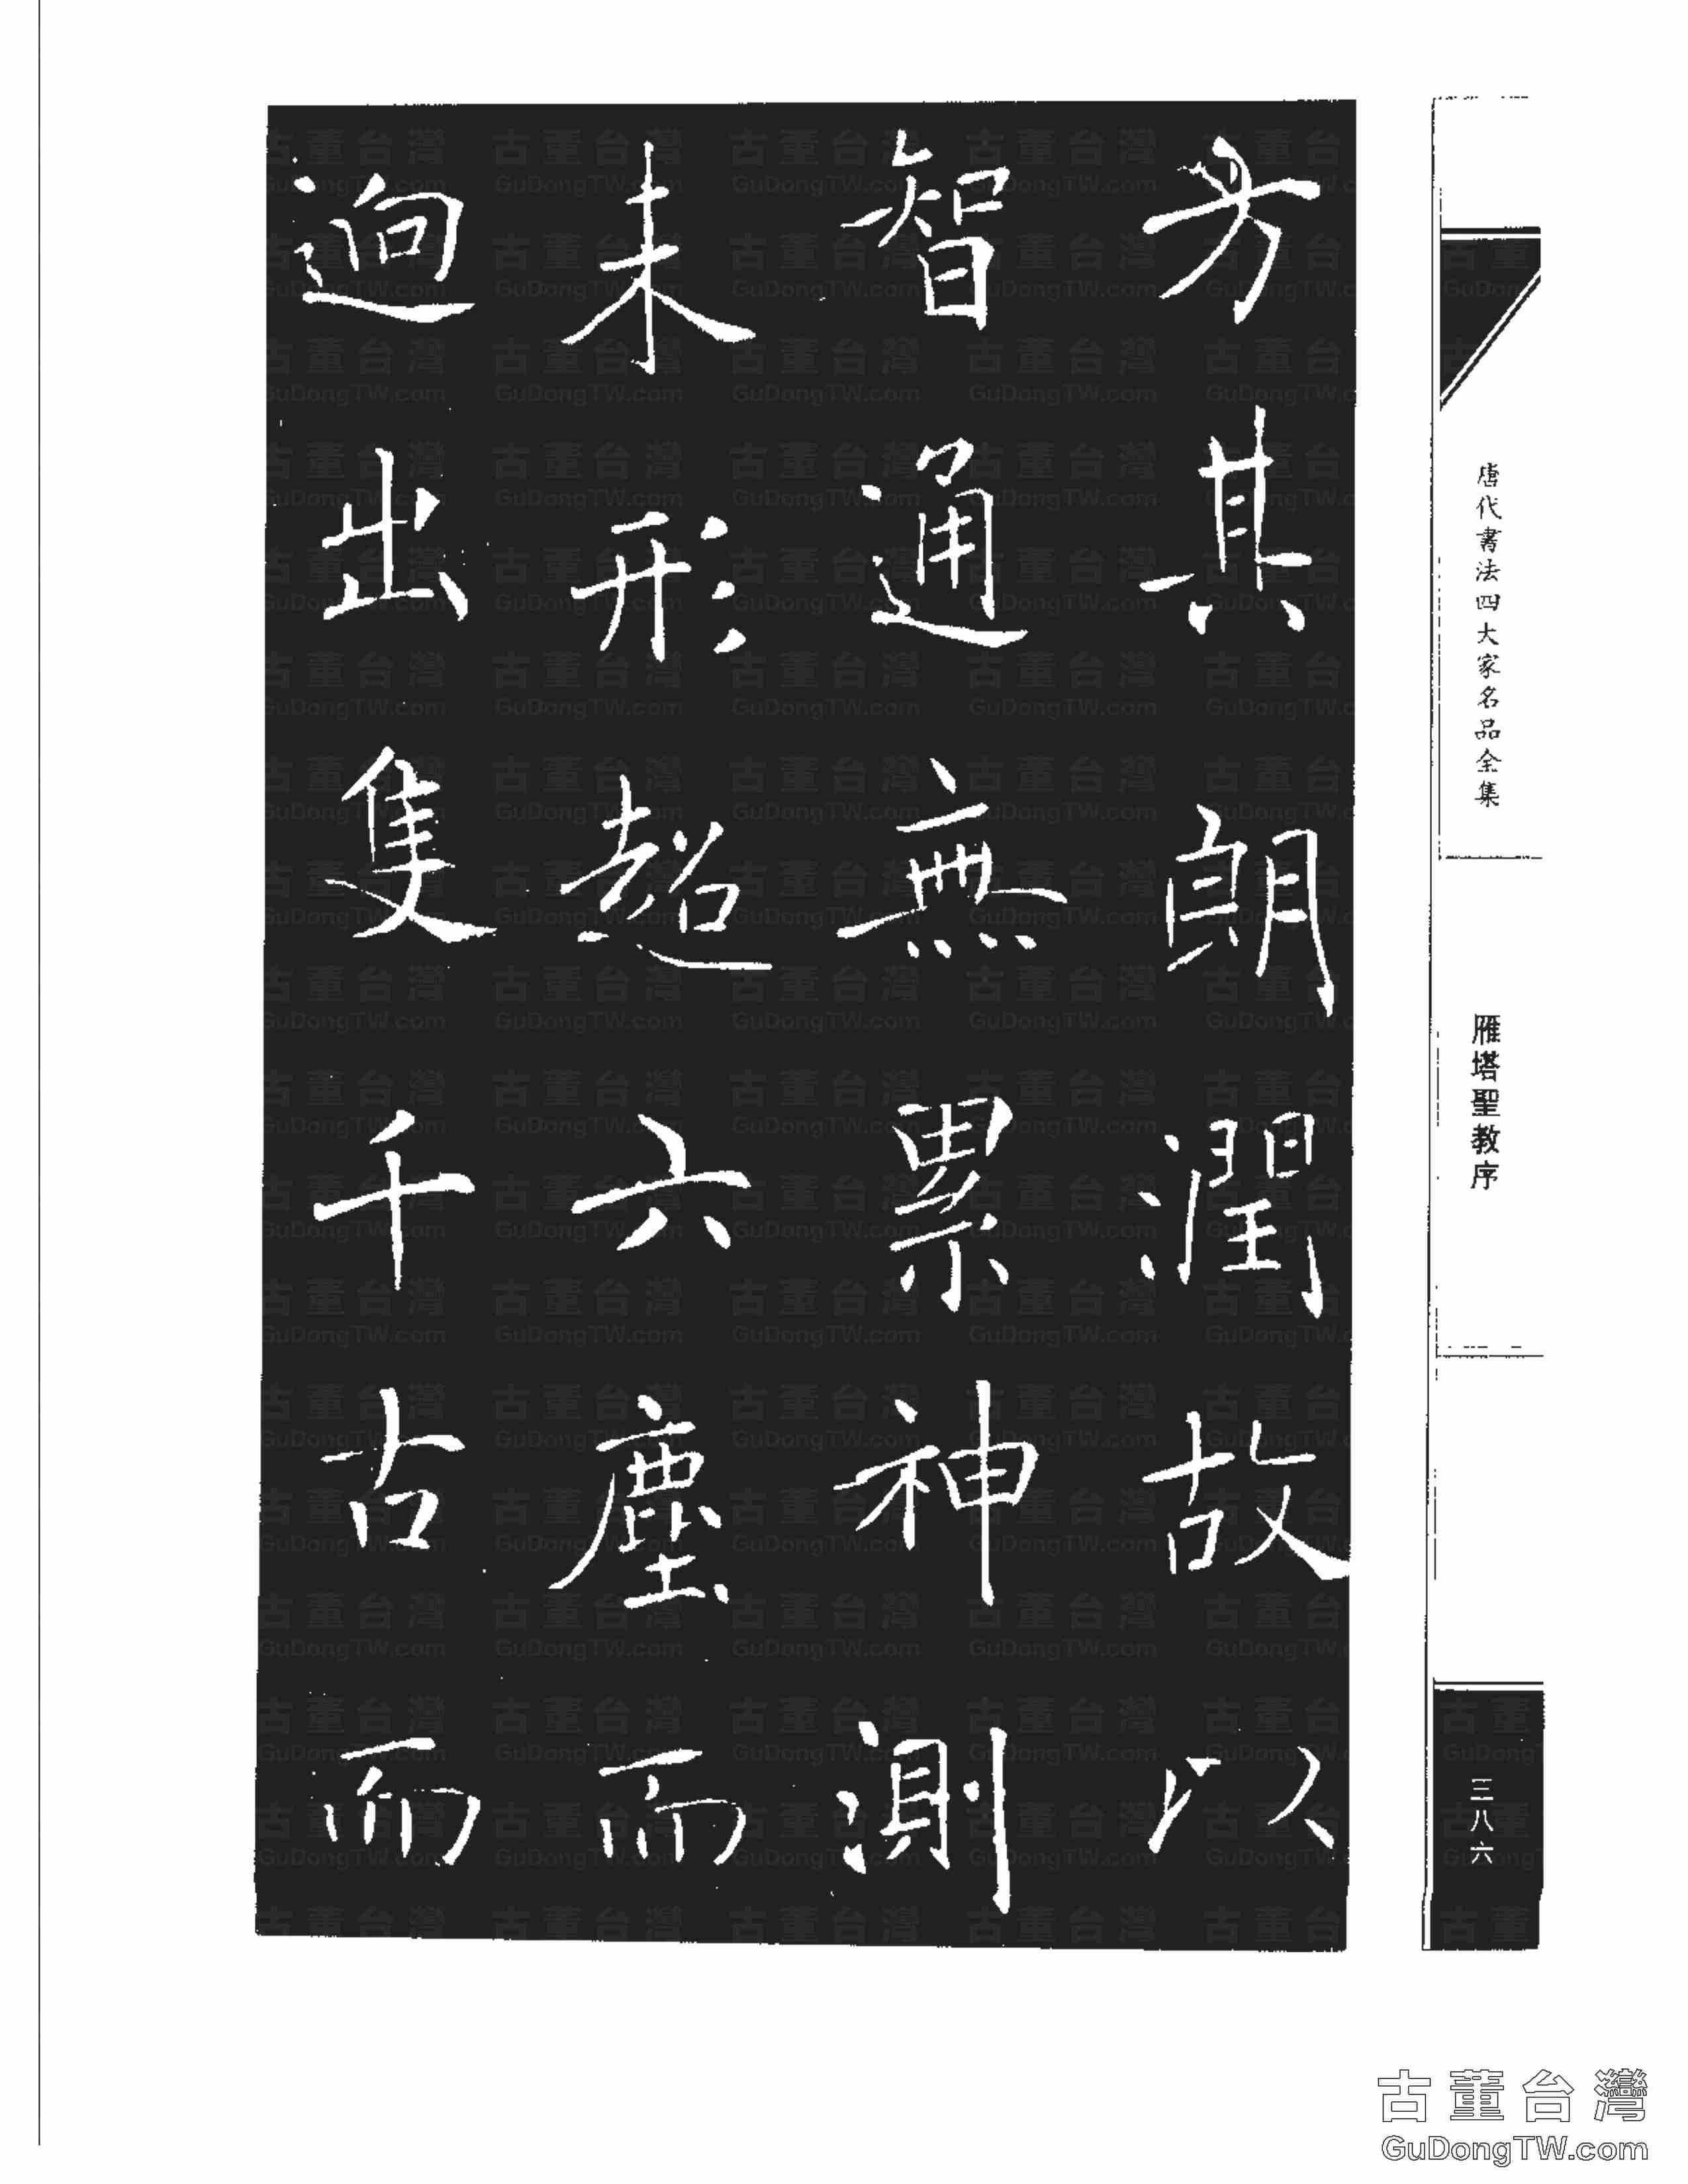 唐代書法四大家名品全集
雁塔聖教序
三八六
方其朗潤故以
智通無累神測
未形超六塵而
迥出隻千古而
古董台灣
GuDongTW.com